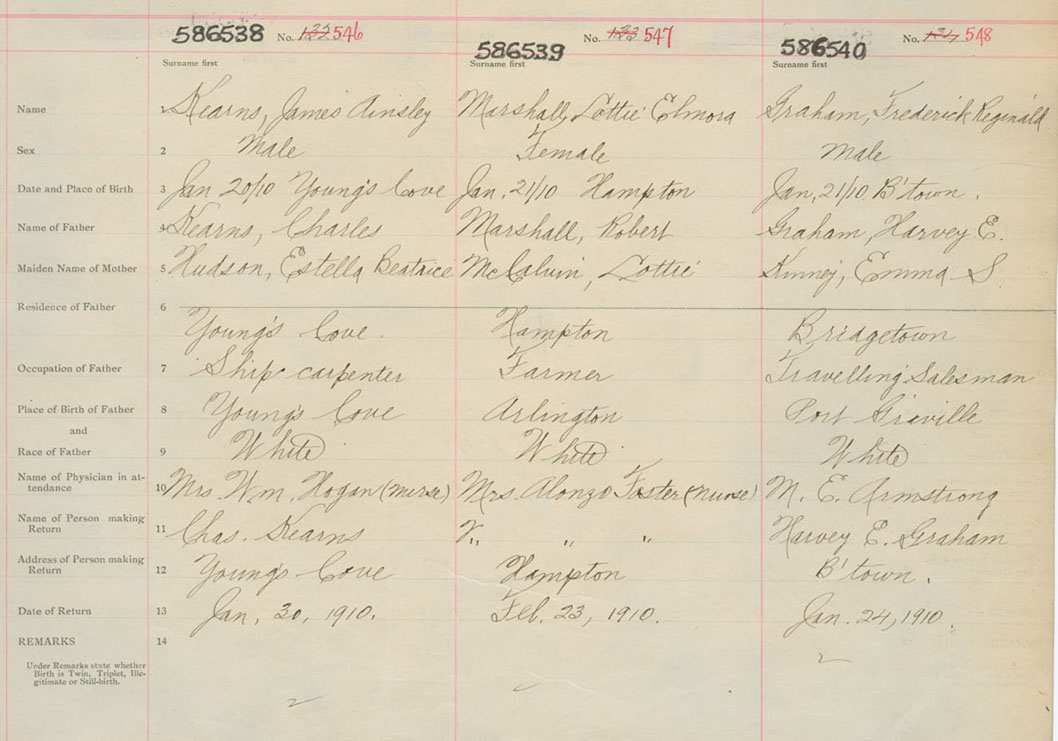 586538 No. 132 546 586539 No. 133 547 586540 No. 134 548
Surname first Surname first Surname first
Name 1 Kearns, James Ainsley Marshall, Lottie Elmora Graham, Frederick Reginald
Sex 2 Male Female Male
Date and Place of Birth 3 Jan 20/10 Young's Cove Jan. 21/10 Hampton Jan, 21/10. B'town.
Name of Father 4 Kearns, Charles Marshall, Robert Graham, Harvey E.
Maiden Name of Mother 5 Hudson, Estella Beatrice McCalvin, Lottie Kinney, Emma S
Residence of Father 6
Young's Cove. Hampton Bridgetown
Occupation of Father 7 Ship carpenter Farmer Travelling Salesman
Place of Birth of Father 8 Young's Cove Arlington Port Greville
and
Race of Father 9 White White White
Name of Physician in at-
tendance 10 Mrs. Wm. Hogan (nurse) Mrs. Alonzo Foster (nurse) M. E. Armstrong
Name of Person making
Return 11 Chas. Kearns " " " Harvey E. Graham
Address of Person making
Return 12 Young's Cove Hampton B'town.
Date of Return 13 Jan, 30, 1910. Feb. 23, 1910. Jan. 24, 1910.
REMARKS 14
Under Remarks state whether
Birth is Twin, Triplet, Ille-
gitimate or Still-birth.